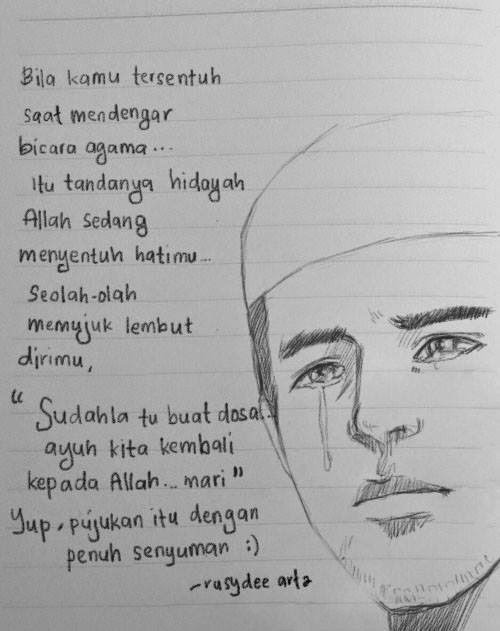 Bila kamu tersentuh
saat mendengar
bicara agama...
Itu tandanya hidayah
Allah sedang
menyentuh hatimu...
Seolah-olah
memujuk lembut
dirimu,
“Sudahla tu buat dosa..
ayuh kita kembali
kepada Allah... mari”
Yup, pujukan itu dengan
penuh senyuman :)
~rusydee artz